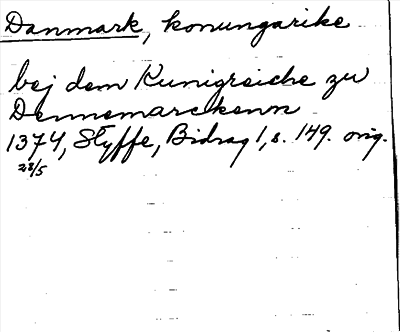 Danmark, konungarike
bej dem Kunigreiche zu
Dennemarckenn
1374, Styffe, Bidrag 1, s. 149. orig.
28/5